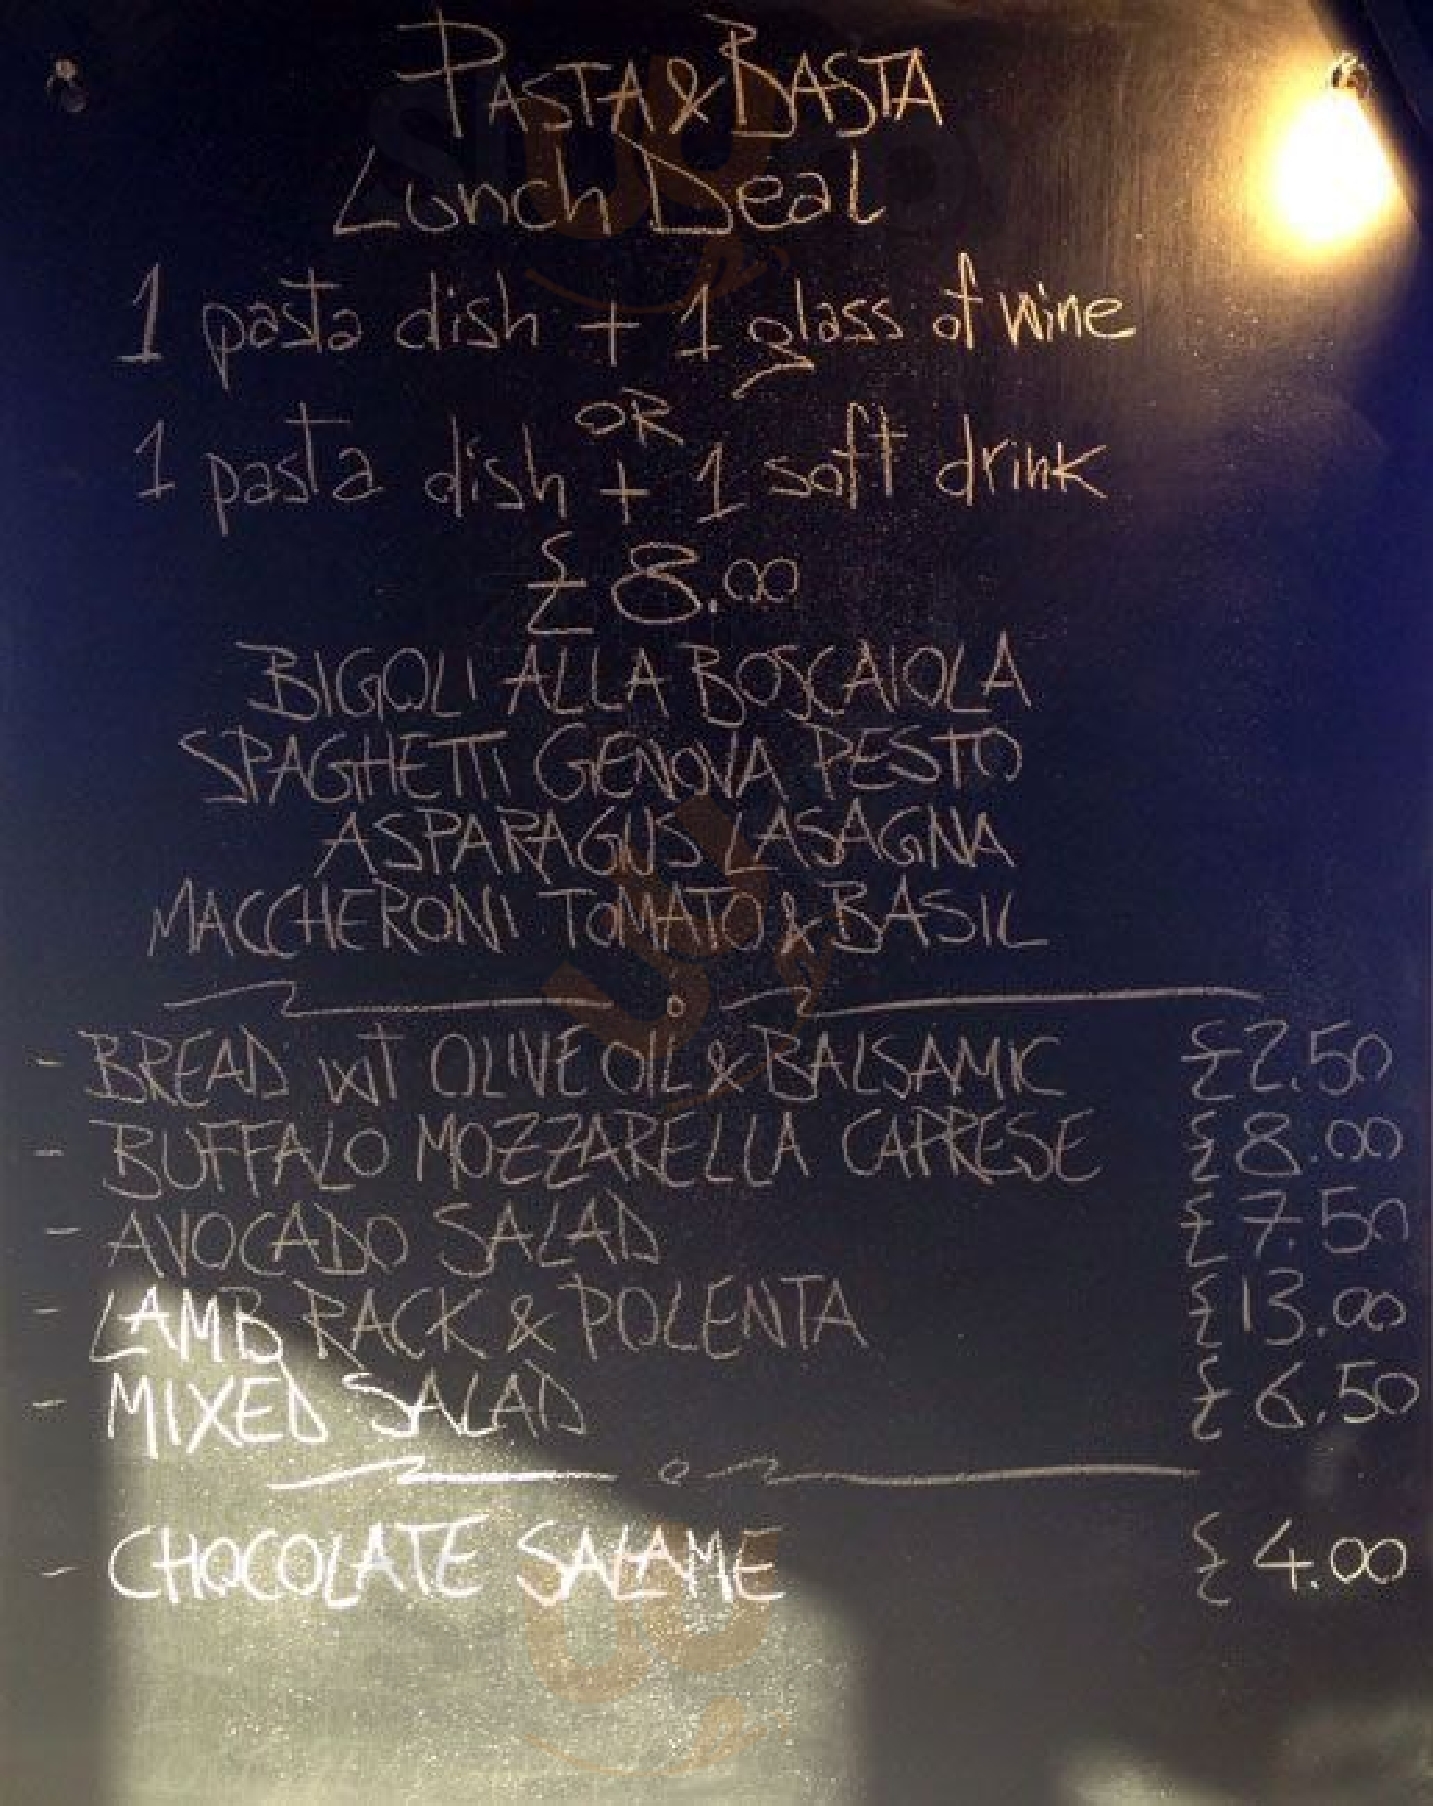 PASTA & BASTA
Lunch Deal
1 pasta dish + 1 glass of wine
OR
1 pasta dish + 1 soft drink
£8.00
BIGOLI ALLA BOSCAIOLA
SPAGHETTI GENOVA PESTO
ASPARAGUS LASAGNA
MACCHERONI TOMATO & BASIL
- BREAD WT OLIVE OIL & BALSAMIC £2.50
- BUFFALO MOZZARELLA CAPRESE £8.00
- AVOCADO SALAD £7.50
- LAMB RACK & POLENTA £13.00
- MIXED SALAD £6.50
- CHOCOLATE SALAME £4.00